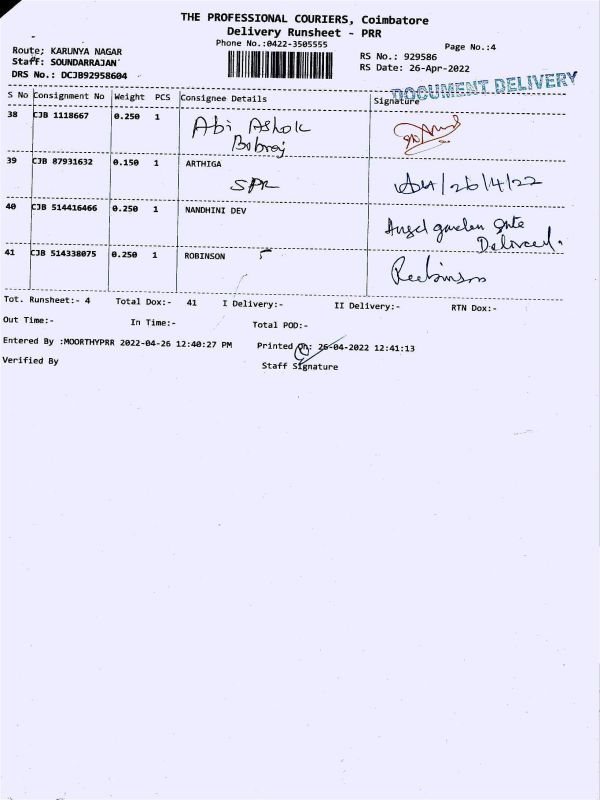 THE PROFESSIONAL COURIERS, Coimbatore
Delivery Runsheet - PRR
Phone No.:0422-3505555
Page No.:4
Route; KARUNYA NAGAR
RS No.: 929586
Staff: SOUNDARRAJAN
RS Date: 26-Apr-2022
DRS No.: DCJB92958604
DOCUMENT DELIVERY
S No Consignment No Weight PCS Consignee Details Signature
38 CJB 1118667 0.250 1 Abi Ashok
39 CJB 87931632 0.150 1 ARTHIGA
SPR /26/4/22
40 CJB 514416466 0.250 1 NANDHINI DEV
Angel garden gate
Delivered.
41 CJB 514338075 0.250 1 ROBINSON
Tot. Runsheet:- 4 Total Dox:- 41 I Delivery:- II Delivery:- RTN Dox:-
Out Time:- In Time:- Total POD:-
Entered By :MOORTHYPRR 2022-04-26 12:40:27 PM Printed On: 26-04-2022 12:41:13
Verified By Staff Signature